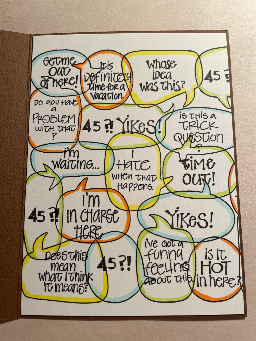 Get me
out
of here!
It is
DEFINITELY
time for a
VACATION.
WHOSE
IDEA
WAS THIS?
45 ?!
DO YOU HAVE
A
PROBLEM
WITH THAT
?
45 ?!
YIKES!
IS THIS A
TRICK
QUESTION
?
I'm
WAITING...
I
HATE
WHEN THAT
HAPPENS.
TIME
OUT!
45 ?!
I'M
IN CHARGE
HERE
YIKES!
DOES THIS
MEAN
WHAT I THINK
IT MEANS?
45 ?!
I'VE GOT A
FUNNY
FEELING
ABOUT THIS
IS IT
HOT
in here?